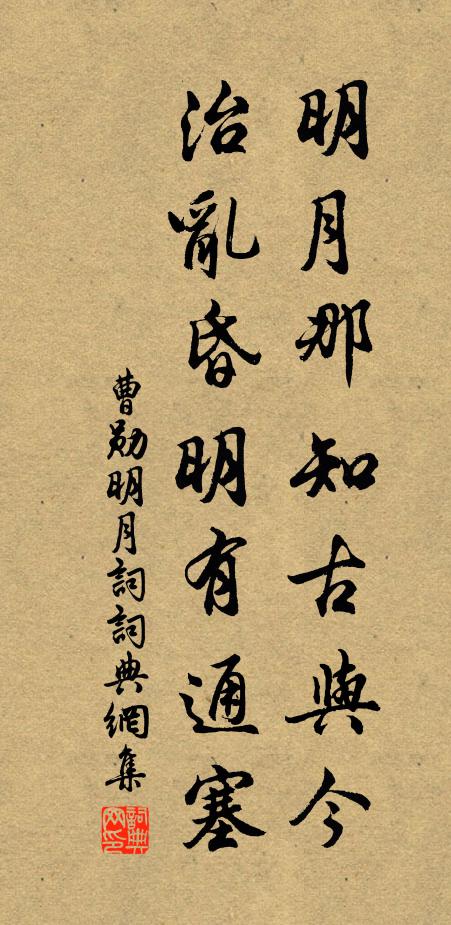 明月那知古與今
治亂昏明有通塞
曹勛明月詞詞典網集
詞典網印